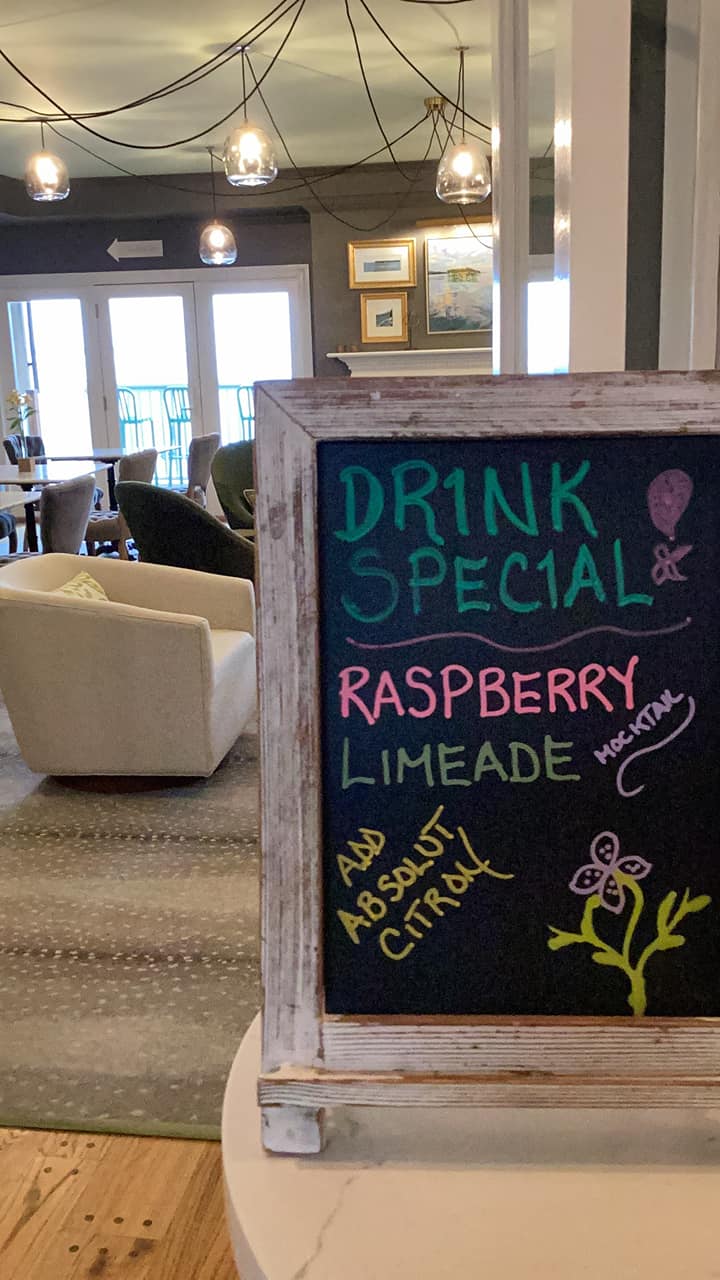 DR1NK
SPEC1AL
RASPBERRY
LIMEADE
MOCKTAIL
ADD
ABSOLUT
CITRON